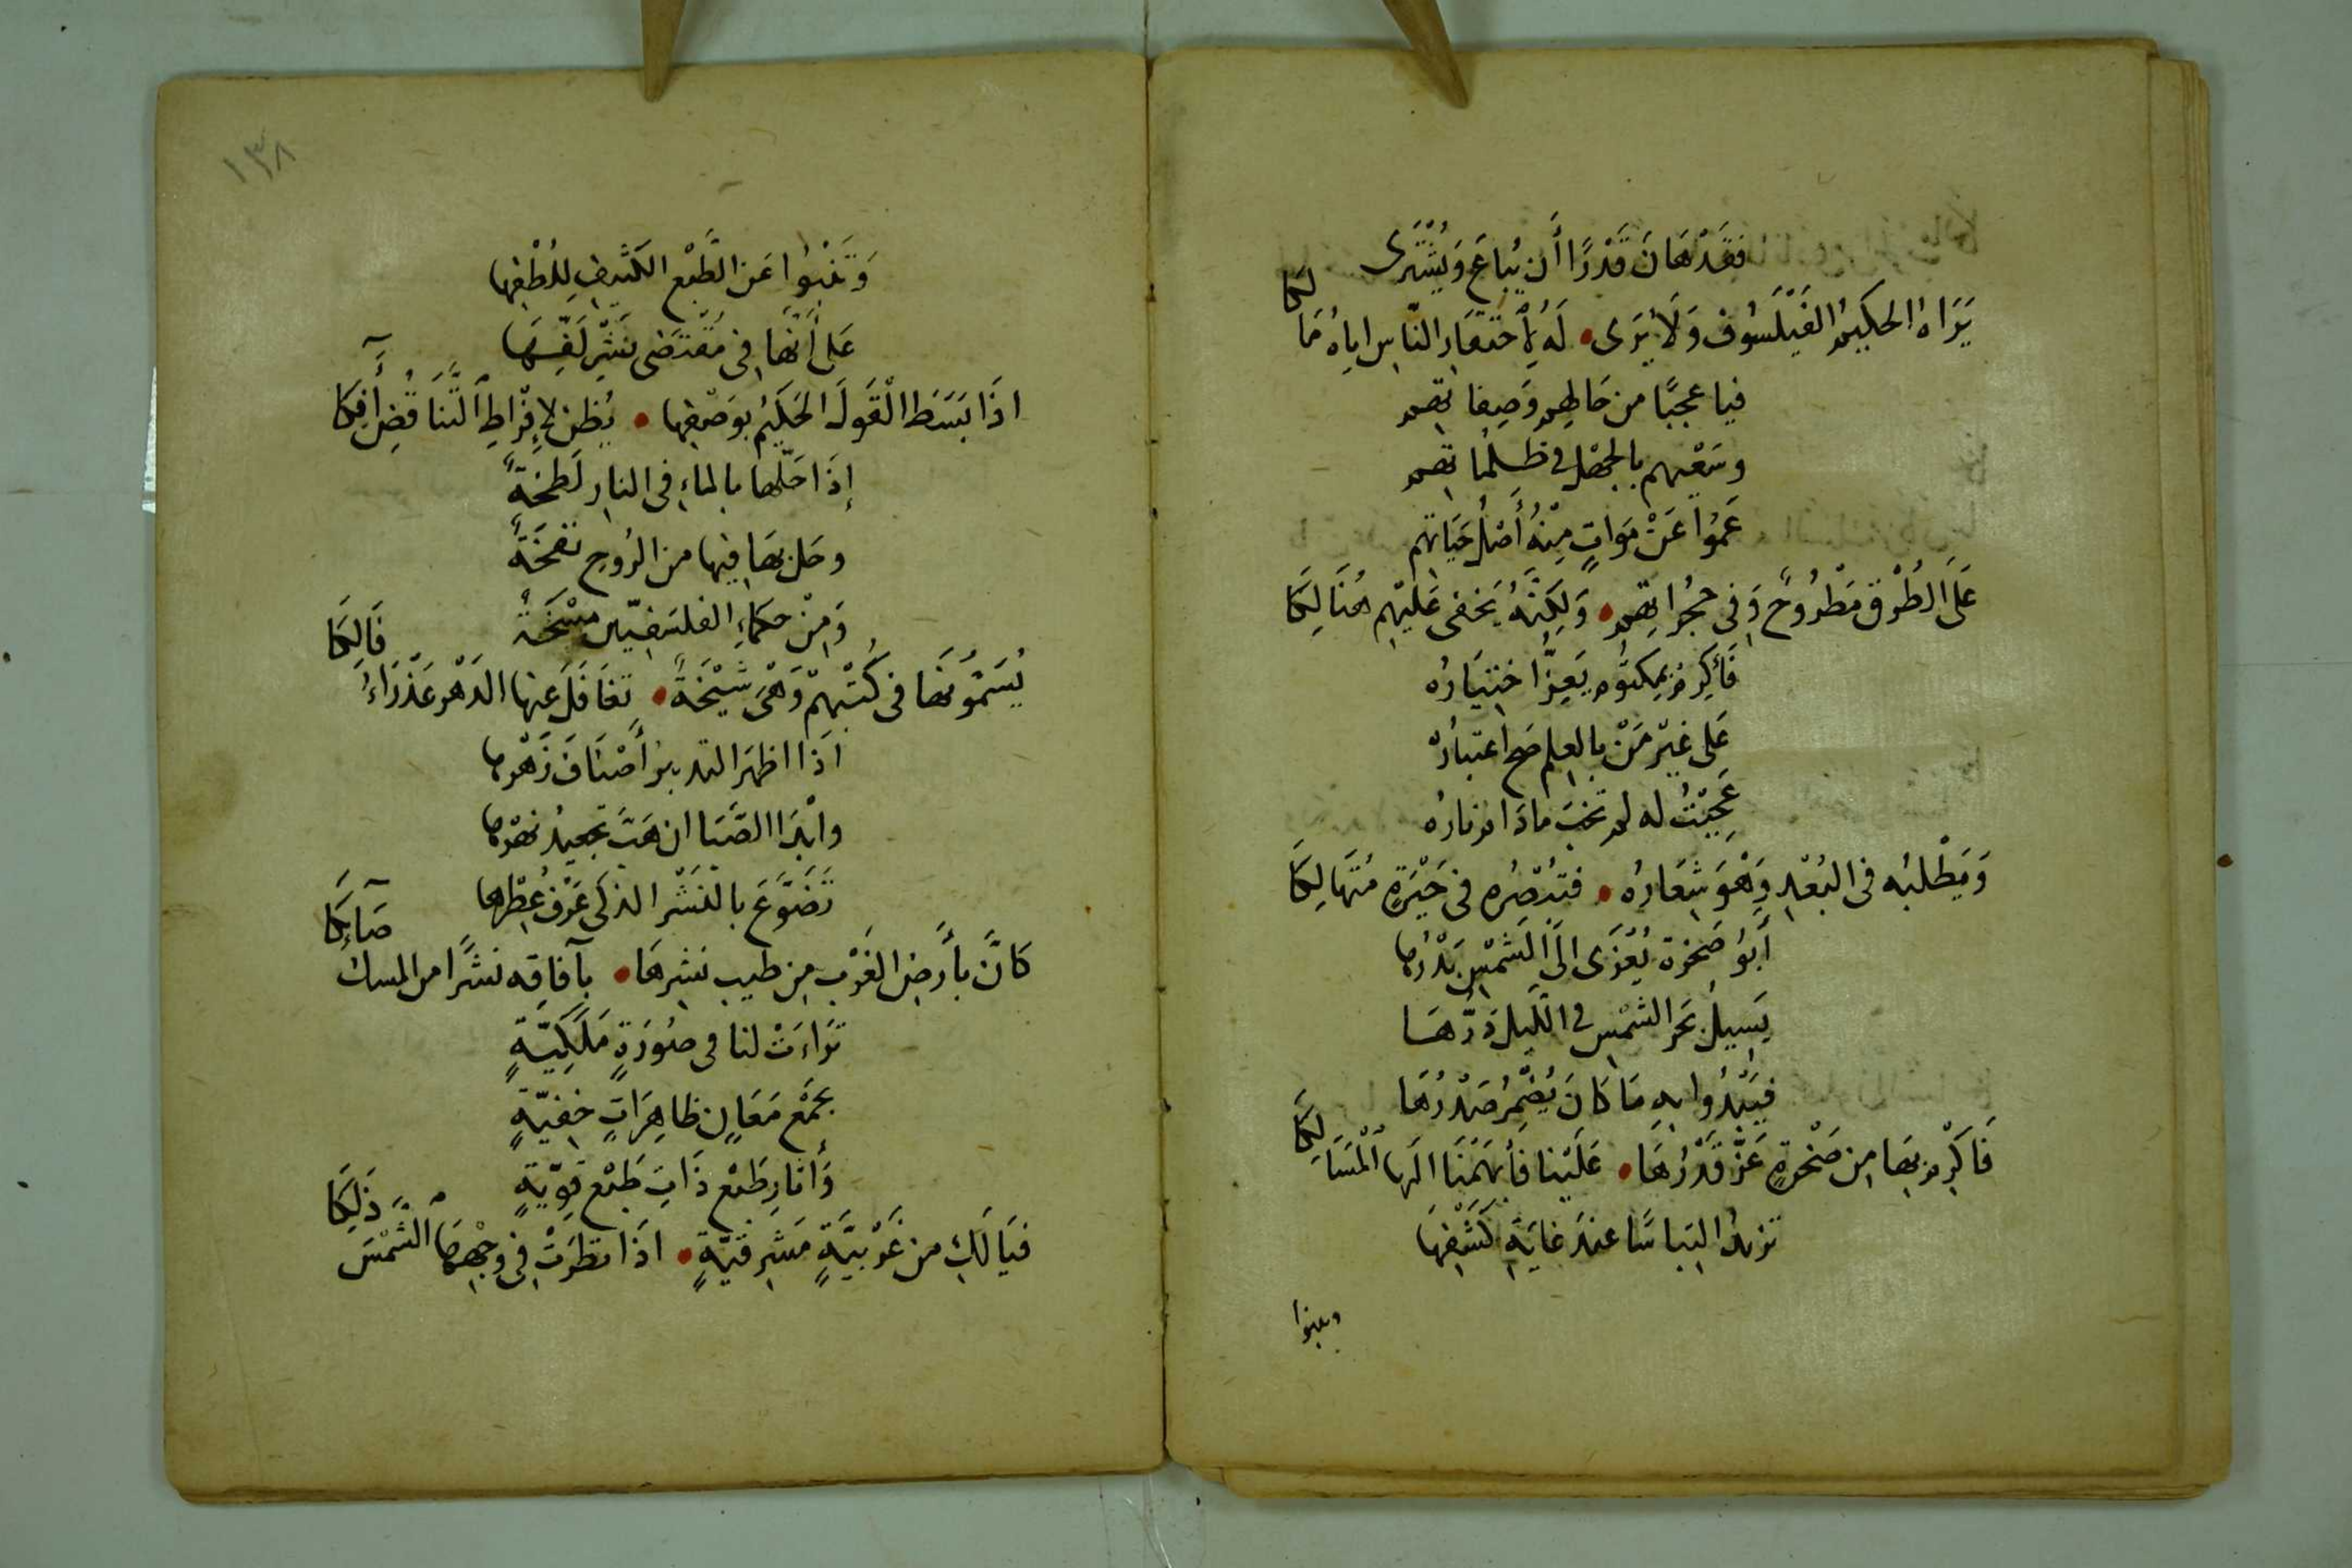 فَقَدْ هَانَ قَدْرًا أَن يُبَاعَ وَيُشْتَرَى
يَرَاهُ الحَكِيمُ الفَيْلَسُوف وَلَا يُرَى • لَهُ لِاحتقَارِ النَّاسِ اياهُ مَا لِكَا
فيا عجبًا من حَالِهِم وَصِفاتِهم
وسَعْيهم بالجهل في ظلماتهم
عَمُوا عَنْ مَوَاتٍ مِنْهُ أَصْلُ حَيَاتِهِم
عَلَى الطُرْقِ مَطْرُوحٌ وَفِى حُجُراتِهِم • وَلَكِنَّهُ يَخفى عَليْهِم هُنَالِكَا
فَأَكرِمْ بِمكتُومٍ يَعِزُّ اختيَارُه
عَلى غيْرِ مَنْ بِالعِلمِ صَح اعتبارُهُ
عَجِبْتُ له لم تخب ماذا نارُه
وَيَطْلبُه فى البُعْدِ وَهْوَ شِعَارُه • فتبْصِرُه فى حَيْرَةٍ مُتَهَالِكَا
أَبُو صَخرة يُعْزَى الَى الشَمْسِ بَدْرُها
يَسِيلُ بحَر الشمْسِ فى اللَيلِ دَرُّهَا
فيَبْدُوا بِهِ مَا كَانَ يُضْمِرُ صَدْرُهَا
فَاكْرِم بِهَا مِن صَخْرةٍ عَزَّ قَدْرُهَا • عَلَيْنا فَأَبهَمْنَا الَيها الْمَسَالِكَا
تزيدُ التِباسًا عندَ غايَةِ كَشْفِهَا
وتنبوا
١٣٨
وَتَنْبُوا عَن الطَّبْعِ الكَثيفِ لِلُطْفِها
عَلى أَنَّهَا فِى مُقْتَضَى نَشْرِ لَفِّهَا
اذَا بَسَطَ الْقَولَ الحَكيْمُ بِوَصْفِها • يُظن لِإفْرَاطِ التَّنَاقُضِ أَفِكَا
إِذَا حَلّها بالماءِ فى النارِ لَطخَةً
وحَل بهَا فيها من الرُوحِ نفخَةً
وَمِنْ حكماءِ الفلسَفيّين مَسْخَةً
يُسَمُّونهَا فى كُتْبِهِمْ وَهْىَ شَيْخَةٌ • تغَافَلَ عنها الدَهْر عَذْرَاءُ فَالِكَا
اذَا اظهَرَ التدبيرُ أَصْنَافَ زَهْرِها
وابْدَا الصَّبَا ان هَبَّ تجعيدَ نهْرِها
تَضَوَّعَ بالنَشْرِ الذكى عَرْفُ عِطْرِها
كَانَّ بأَرضِ الغَرْبِ مِن طيبِ نشرِهَا • بآفاقِه نشْرًا من المسك صَائِكَا
تَرَاءَتْ لنا فى صُورَةٍ مَلَكِيَّةٍ
بجَمْع مَعَانٍ ظاهِرَاتٍ خفيّةٍ
وَأثارِ طَبْع ذَاتِ طَبْع قوِيّةٍ
فيَا لَكِ من غَرْبيَّةٍ مَشْرِقيّةٍ • اذَا نظرَتْ فِى وَجْهِهَا الشَّمْسَ ذَلِكَا